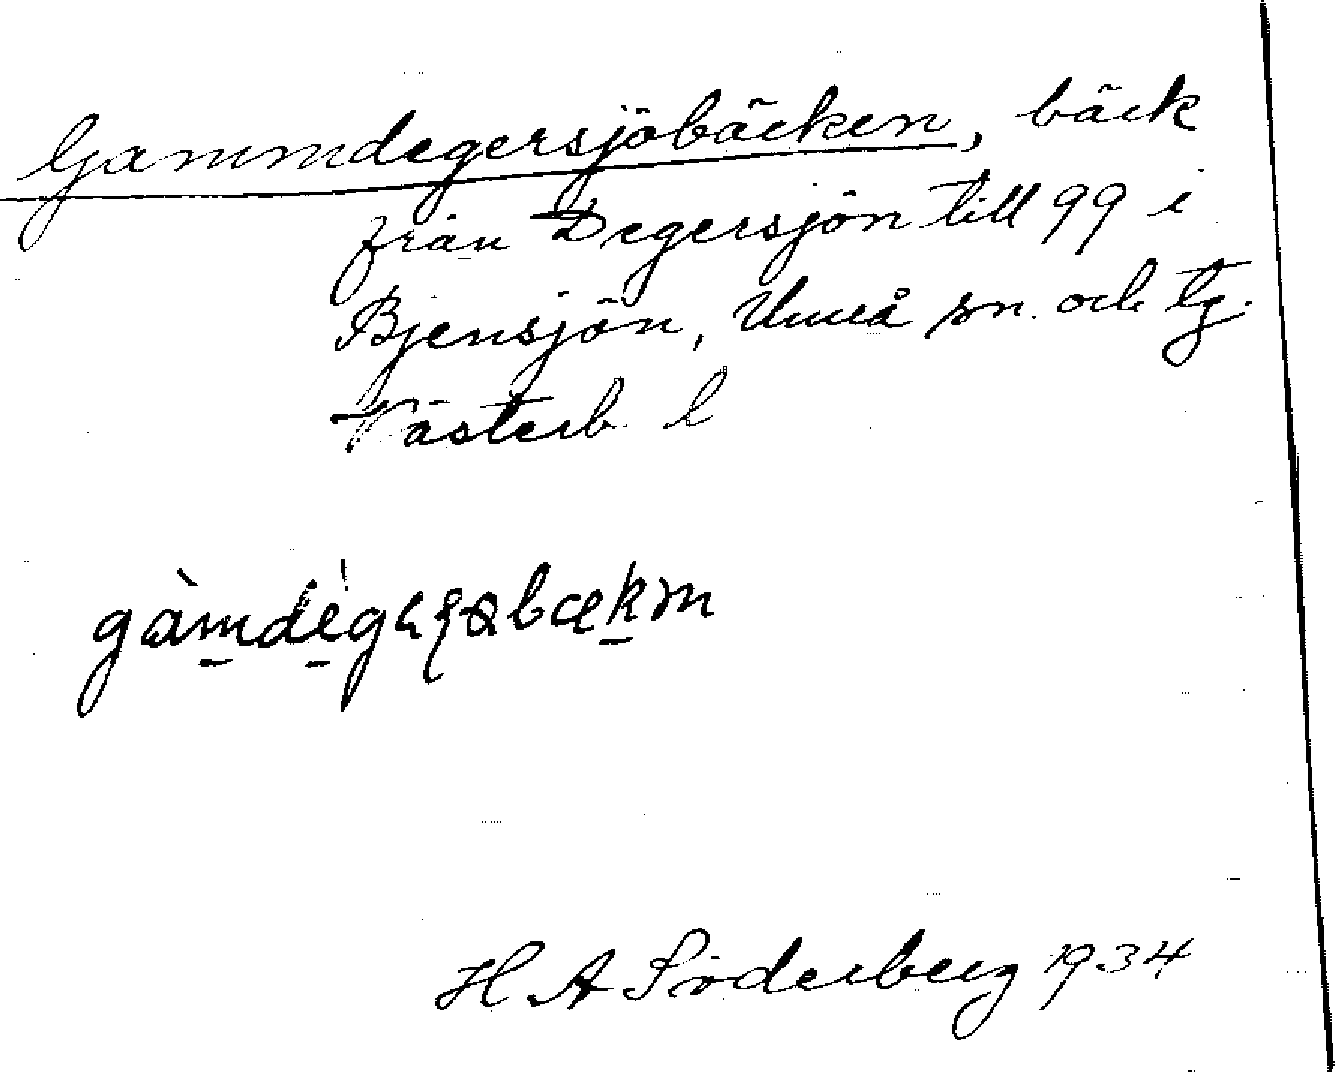 Gammdegersjöbäcken, bäck
från Degersjön till 99 i
Bjensjön, Umeå sn. och tg.
Västerb. l
H A Söderberg 1934